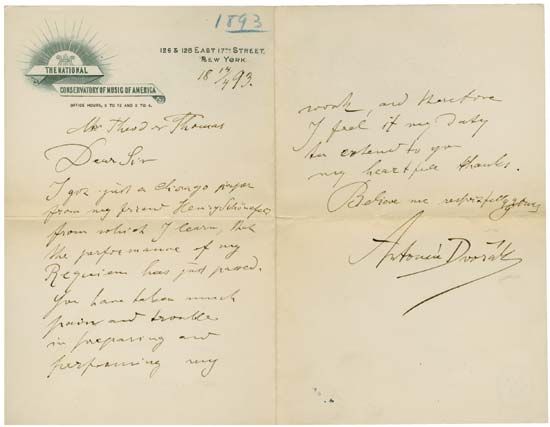 1893
THE NATIONAL
CONSERVATORY OF MUSIC OF AMERICA
OFFICE HOURS, 9 TO 12 AND 2 TO 4.
126 & 128 EAST 17TH STREET,
NEW YORK.
18 17/4 93.
Mr Theodor Thomas
Dear Sir
I got just a paper
from my friend Henry Schönefeld
from which I learn, that
the performance of my
Requiem has just passed.
You have taken much
pain and trouble
in preparing and
performing my
work, and therefore
I feel it my Duty
to extend to yo
my heartfull thanks.
Believe me respectfully yours
Antonín Dvořák